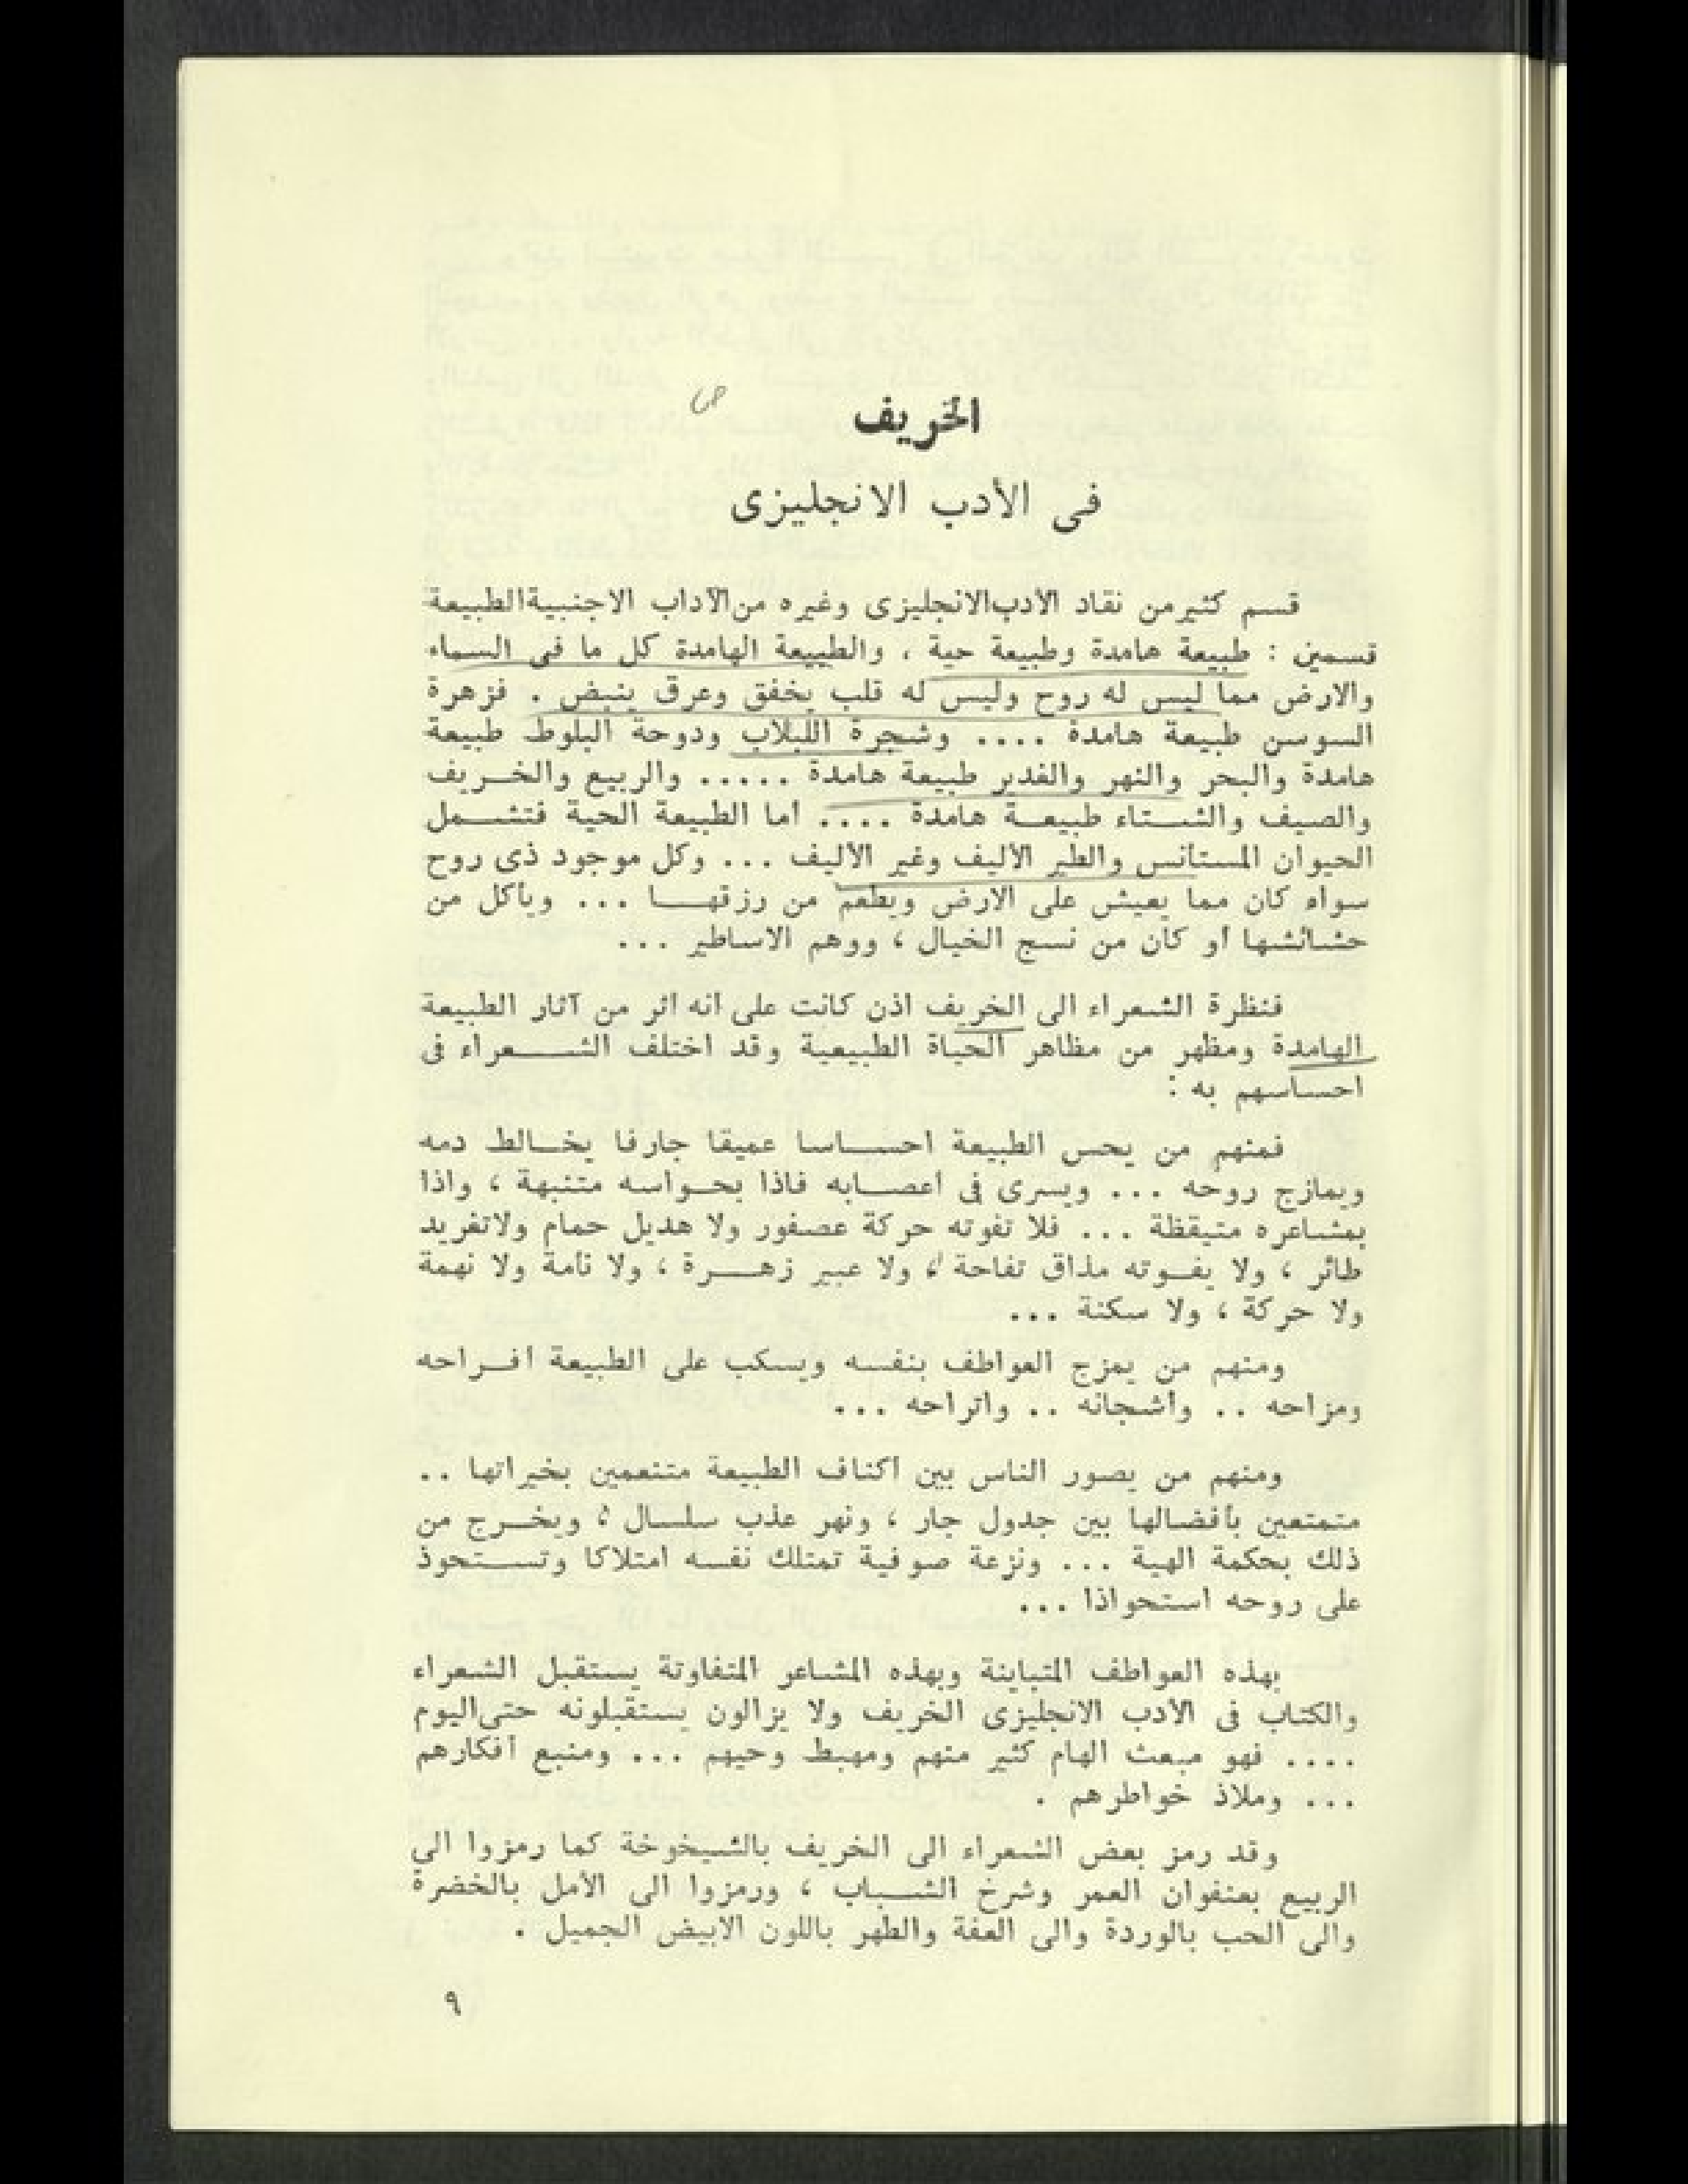 الخريف
فى الأدب الانجليزى
قسم كثير من نقاد الأدب الانجليزى وغيره من الآداب الاجنبية الطبيعة
قسمين : طبيعة هامدة وطبيعة حية ، والطبيعة الهامدة كل ما فى السماء
والارض مما ليس له روح وليس له قلب يخفق وعرق ينبض . فزهرة
السوسن طبيعة هامدة .... وشجرة اللبلاب ودوحة البلوط طبيعة
هامدة والبحر والنهر والغدير طبيعة هامدة ..... والربيع والخريف
والصيف والشتاء طبيعة هامدة .... أما الطبيعة الحية فتشمل
الحيوان المستأنس والطير الأليف وغير الأليف ... وكل موجود ذى روح
سواء كان مما يعيش على الارض ويطعم من رزقها ... ويأكل من
حشائشها أو كان من نسج الخيال ، ووهم الاساطير ...
فنظرة الشعراء الى الخريف اذن كانت على أنه أثر من آثار الطبيعة
الهامدة ومظهر من مظاهر الحياة الطبيعية وقد اختلف الشعراء فى
احساسهم به :
فمنهم من يحس الطبيعة احساسا عميقا جارفا يخالط دمه
ويمازج روحه ... ويسرى فى أعصابه فاذا بحواسه متنبهة ، واذا
بمشاعره متيقظة ... فلا تفوته حركة عصفور ولا هديل حمام ولاتغريد
طائر ، ولا يفوته مذاق تفاحة ، ولا عبير زهرة ، ولا نأمة ولا نهمة
ولا حركة ، ولا سكنة ...
ومنهم من يمزج العواطف بنفسه ويسكب على الطبيعة أفراحه
ومزاحه .. وأشجانه .. واتراحه ...
ومنهم من يصور الناس بين أكناف الطبيعة متنعمين بخيراتها ..
متمتعين بأفضالها بين جدول جار ، ونهر عذب سلسال ، ويخرج من
ذلك بحكمة الهية ... ونزعة صوفية تمتلك نفسه امتلاكا وتستحوذ
على روحه استحواذا ...
بهذه العواطف المتباينة وبهذه المشاعر المتفاوتة يستقبل الشعراء
والكتاب فى الأدب الانجليزى الخريف ولا يزالون يستقبلونه حتى اليوم
.... فهو مبعث الهام كثير منهم ومهبط وحيهم ... ومنبع أفكارهم
... وملاذ خواطرهم .
وقد رمز بعض الشعراء الى الخريف بالشيخوخة كما رمزوا الى
الربيع بعنفوان العمر وشرخ الشباب ، ورمزوا الى الأمل بالخضرة
والى الحب بالوردة والى العفة والطهر باللون الابيض الجميل .
٩